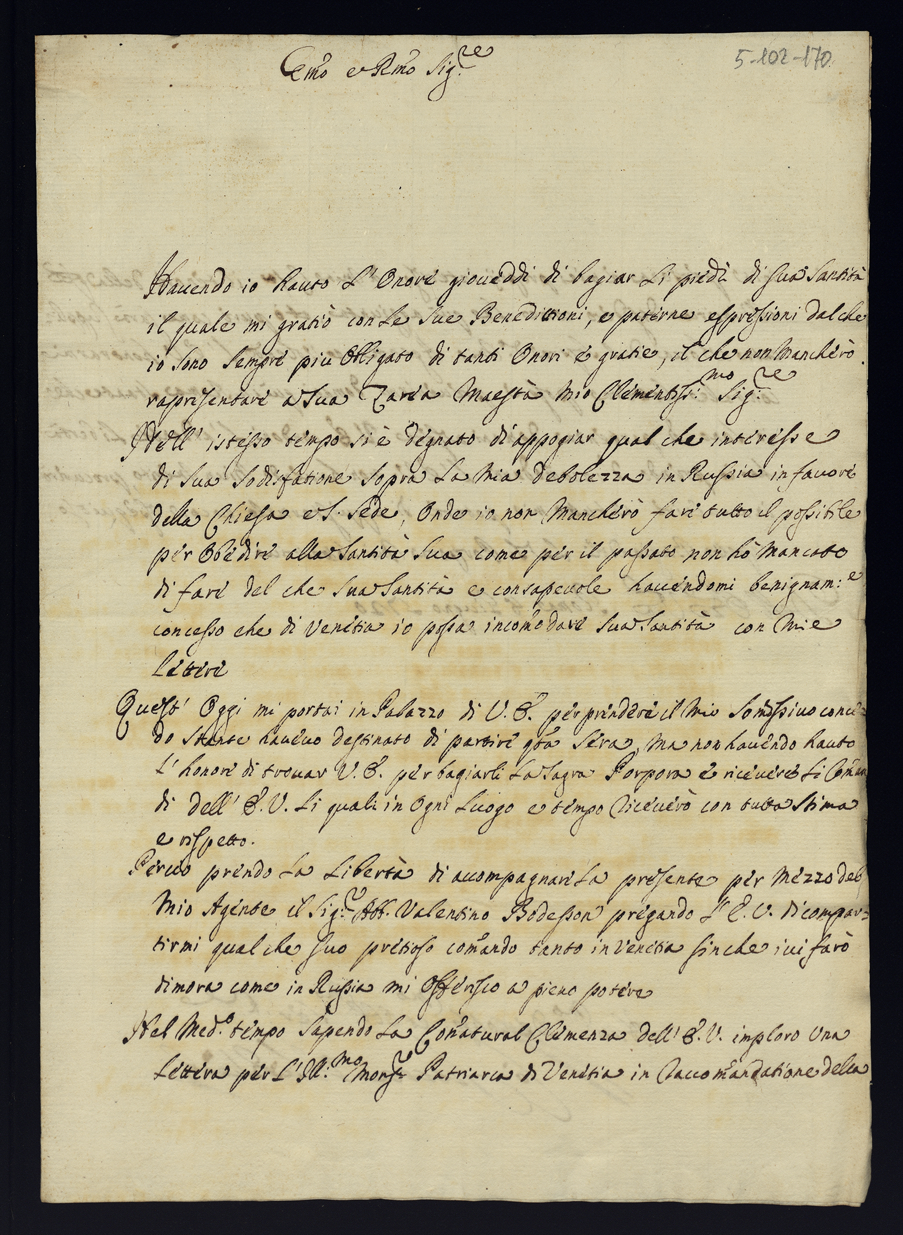 5-102-170
Em̃o e Rm̃o Sig.re
Havendo io hauto L'Onore giovèddi di bagiar Li piedi di sua Santità
il quale mi gratiò con Le Sue Benedittioni, e paterne espressioni dal che
io sono Sempre piu Obligato di tanti Onori è gratie, il che non Mancherò
rapresentare a Sua Zarea Maestà Mio Clementiss:mo Sig.re
Nell' istesso tempo si è degnato di appogiar qual che interesse
di Sua Sodisfatione Sopra La Mia Debolezza in Russia in favore
della Chiesa e S. Sede, Onde io non Mancherò fare tutto il possibile
per Obedire alla Santità Sua come per il passato non hò Mancato
di fare del che Sua Santità e consapevole havendomi benignam:e
concesso che di Venetia io possa incom̃odare Sua Santità con Mie
Lettere
Quest' Oggi mi portai in Palazzo di V. E. per prendere il Mio Som̃issivo conce=
do Stante havevo destinato di partire q̃ta Sera, Ma non havendo hauto
L'honore di trovar V. E. per bagiarli La Sagra Porpora è ricevere Li Com̃an
di dell' E. V. Li quali in Ogni Luogo e tempo riceverò con tutta Stima
e rispetto.
Perciò prendo La Libertà di accompagnare La presente per Mezzo del
Mio Agente il Sig.r Abb. Valentino Bodesson pregando L' E. V. di compar=
tirmi qual che suo pretioso com̃ando tanto in Venetia sin che ivi farò
dimora come in Russia mi Offerisco a pieno potere
Nel Med.o tempo Sapendo La Con̄atural Clemenza dell' E. V. imploro Una
Lettera per L' Ill:mo Monsr Patriarca di Venetia in raccom̃andatione della